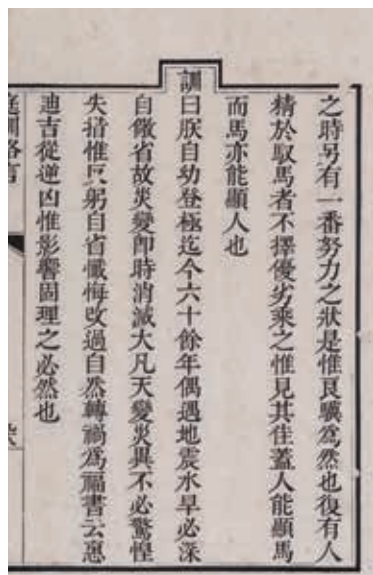 之時另有一番努力之狀是惟良驥爲然也復有人
精於馭馬者不擇優劣乘之惟見其佳蓋人能顯馬
而馬亦能顯人也
訓曰朕自幼登極迄今六十餘年偶遇地震水旱必深
自儆省故災變卽時消滅大凡天變災異不必驚惶
失措惟反躬自省懺悔改過自然轉禍爲福書云惠
迪吉從逆凶惟影響固理之必然也
庭訓格言